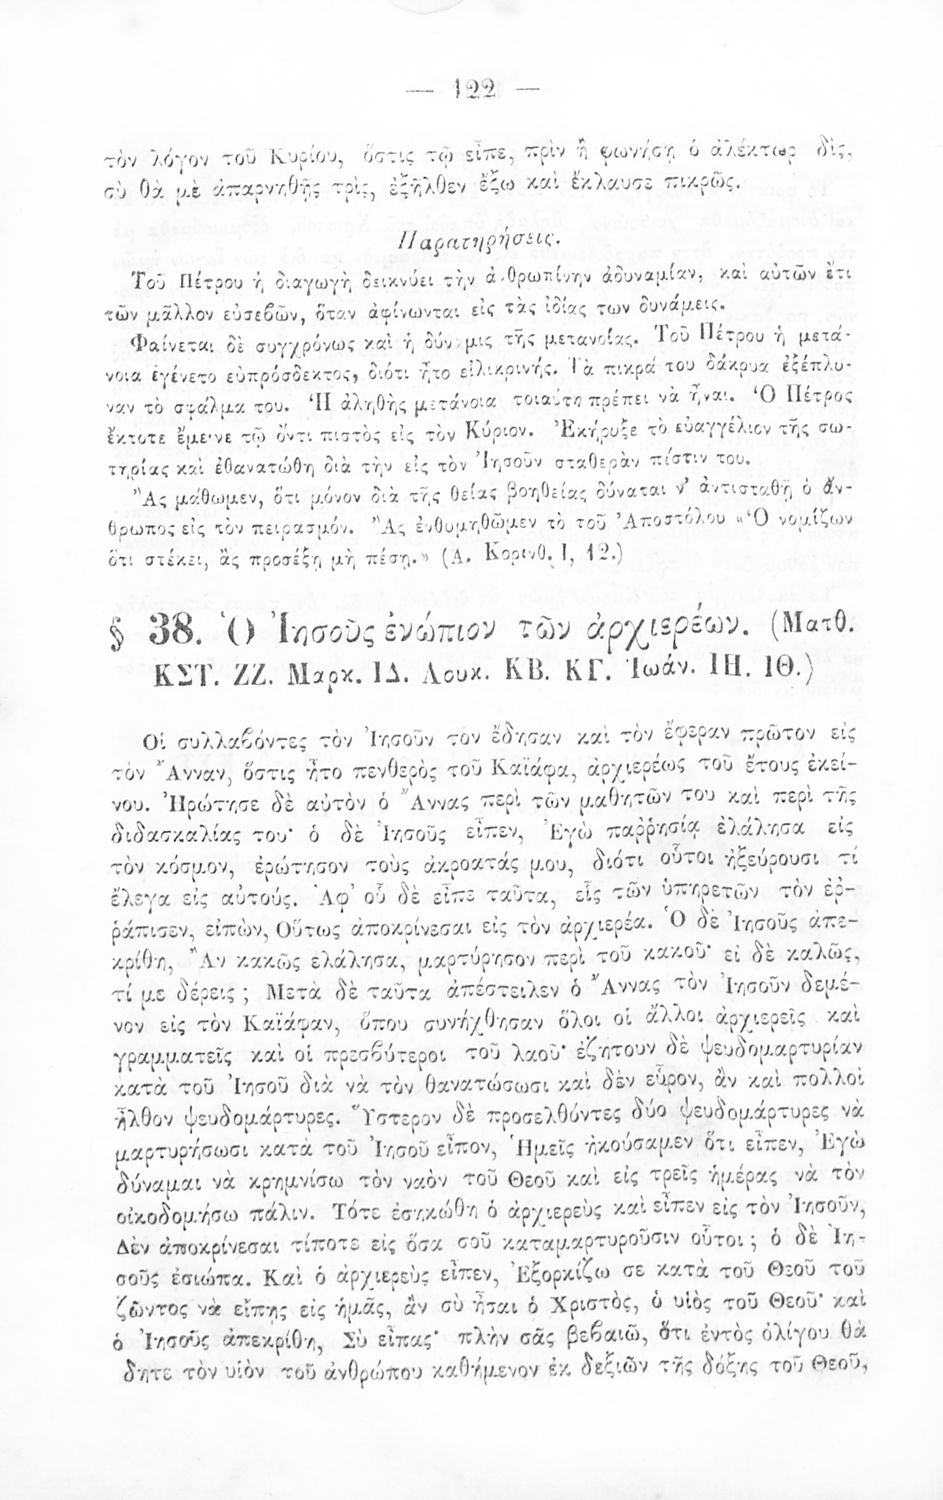 — 122 —
τὸν λόγον τοῦ Κυρίου, ὅστις τῷ εἶπε, πρὶν ἢ φωνήσῃ ὁ ἀλέκτωρ δὶς,
σὺ θὰ μὲ ἀπαρνηθῇς τρὶς, ἐξῆλθεν ἔξω καὶ ἔκλαυσε πικρῶς.
Παρατηρήσεις.
Τοῦ Πέτρου ἡ διαγωγὴ δεικνύει τὴν ἀνθρωπίνην ἀδυναμίαν, καὶ αὐτῶν ἔτι
τῶν μᾶλλον εὐσεβῶν, ὅταν ἀφίνωνται εἰς τὰς ἰδίας των δυνάμεις.
Φαίνεται δὲ συγχρόνως καὶ ἡ δύναμις τῆς μετανοίας. Τοῦ Πέτρου ἡ μετά-
νοια ἐγένετο εὐπρόσδεκτος, διότι ἦτο εἰλικρινής. Τὰ πικρά του δάκρυα ἐξέπλυ-
ναν τὸ σφάλμα του. Ἡ ἀληθὴς μετάνοια τοιαύτη πρέπει νὰ ᾖναι. Ὁ Πέτρος
ἔκτοτε ἔμεινε τῷ ὄντι πιστὸς εἰς τὸν Κύριον. Ἐκήρυξε τὸ εὐαγγέλιον τῆς σω-
τηρίας καὶ ἐθανατώθη διὰ τὴν εἰς τὸν Ἰησοῦν σταθερὰν πίστιν του.
Ἂς μάθωμεν, ὅτι μόνον διὰ τῆς θείας βοηθείας δύναται ν' ἀντισταθῇ ὁ ἄν-
θρωπος εἰς τὸν πειρασμόν. Ἂς ἐνθυμηθῶμεν τὸ τοῦ Ἀποστόλου «Ὁ νομίζων
ὅτι στέκει, ἂς προσέξῃ μὴ πέσῃ.» (Α. Κορινθ. Ι, 12.)
§ 38. Ὁ Ἰησοῦς ἐνώπιον τῶν ἀρχιερέων. (Ματθ.
ΚΣΤ. ΖΖ. Μαρκ. ΙΔ. Λουκ. ΚΒ. ΚΓ. Ἰωάν. ΙΗ. ΙΘ.)
Οἱ συλλαβόντες τὸν Ἰησοῦν τὸν ἔδησαν καὶ τὸν ἔφεραν πρῶτον εἰς
τὸν Ἄνναν, ὅστις ἦτο πενθερὸς τοῦ Καϊάφα, ἀρχιερέως τοῦ ἔτους ἐκεί-
νου. Ἠρώτησε δὲ αὐτὸν ὁ Ἄννας περὶ τῶν μαθητῶν του καὶ περὶ τῆς
διδασκαλίας του· ὁ δὲ Ἰησοῦς εἶπεν, Ἐγὼ παῤῥησίᾳ ἐλάλησα εἰς
τὸν κόσμον, ἐρώτησον τοὺς ἀκροατάς μου, διότι οὗτοι ἠξεύρουσι τί
ἔλεγα εἰς αὐτούς. Ἀφ' οὗ δὲ εἶπε ταῦτα, εἷς τῶν ὑπηρετῶν τὸν ἐῤ-
ῥάπισεν, εἰπὼν, Οὕτως ἀποκρίνεσαι εἰς τὸν ἀρχιερέα. Ὁ δὲ Ἰησοῦς ἀπε-
κρίθη, Ἂν κακῶς ἐλάλησα, μαρτύρησον περὶ τοῦ κακοῦ· εἰ δὲ καλῶς,
τί με δέρεις ; Μετὰ δὲ ταῦτα ἀπέστειλεν ὁ Ἄννας τὸν Ἰησοῦν δεμέ-
νον εἰς τὸν Καϊάφαν, ὅπου συνήχθησαν ὅλοι οἱ ἄλλοι ἀρχιερεῖς καὶ
γραμματεῖς καὶ οἱ πρεσβύτεροι τοῦ λαοῦ· ἐζήτουν δὲ ψευδομαρτυρίαν
κατὰ τοῦ Ἰησοῦ διὰ νὰ τὸν θανατώσωσι καὶ δὲν εὗρον, ἂν καὶ πολλοὶ
ἦλθον ψευδομάρτυρες. Ὕστερον δὲ προσελθόντες δύο ψευδομάρτυρες νὰ
μαρτυρήσωσι κατὰ τοῦ Ἰησοῦ εἶπον, Ἡμεῖς ἠκούσαμεν ὅτι εἶπεν, Ἐγὼ
δύναμαι νὰ κρημνίσω τὸν ναὸν τοῦ Θεοῦ καὶ εἰς τρεῖς ἡμέρας νὰ τὸν
οἰκοδομήσω πάλιν. Τότε ἐσηκώθη ὁ ἀρχιερεὺς καὶ εἶπεν εἰς τὸν Ἰησοῦν,
Δὲν ἀποκρίνεσαι τίποτε εἰς ὅσα σοῦ καταμαρτυροῦσιν οὗτοι ; ὁ δὲ Ἰη-
σοῦς ἐσιώπα. Καὶ ὁ ἀρχιερεὺς εἶπεν, Ἐξορκίζω σε κατὰ τοῦ Θεοῦ τοῦ
ζῶντος νὰ εἴπῃς εἰς ἡμᾶς, ἂν σὺ ἦσαι ὁ Χριστὸς, ὁ υἱὸς τοῦ Θεοῦ· καὶ
ὁ Ἰησοῦς ἀπεκρίθη, Σὺ εἶπας· πλὴν σᾶς βεβαιῶ, ὅτι ἐντὸς ὀλίγου θὰ
δῆτε τὸν υἱὸν τοῦ ἀνθρώπου καθήμενον ἐκ δεξιῶν τῆς δόξης τοῦ Θεοῦ,